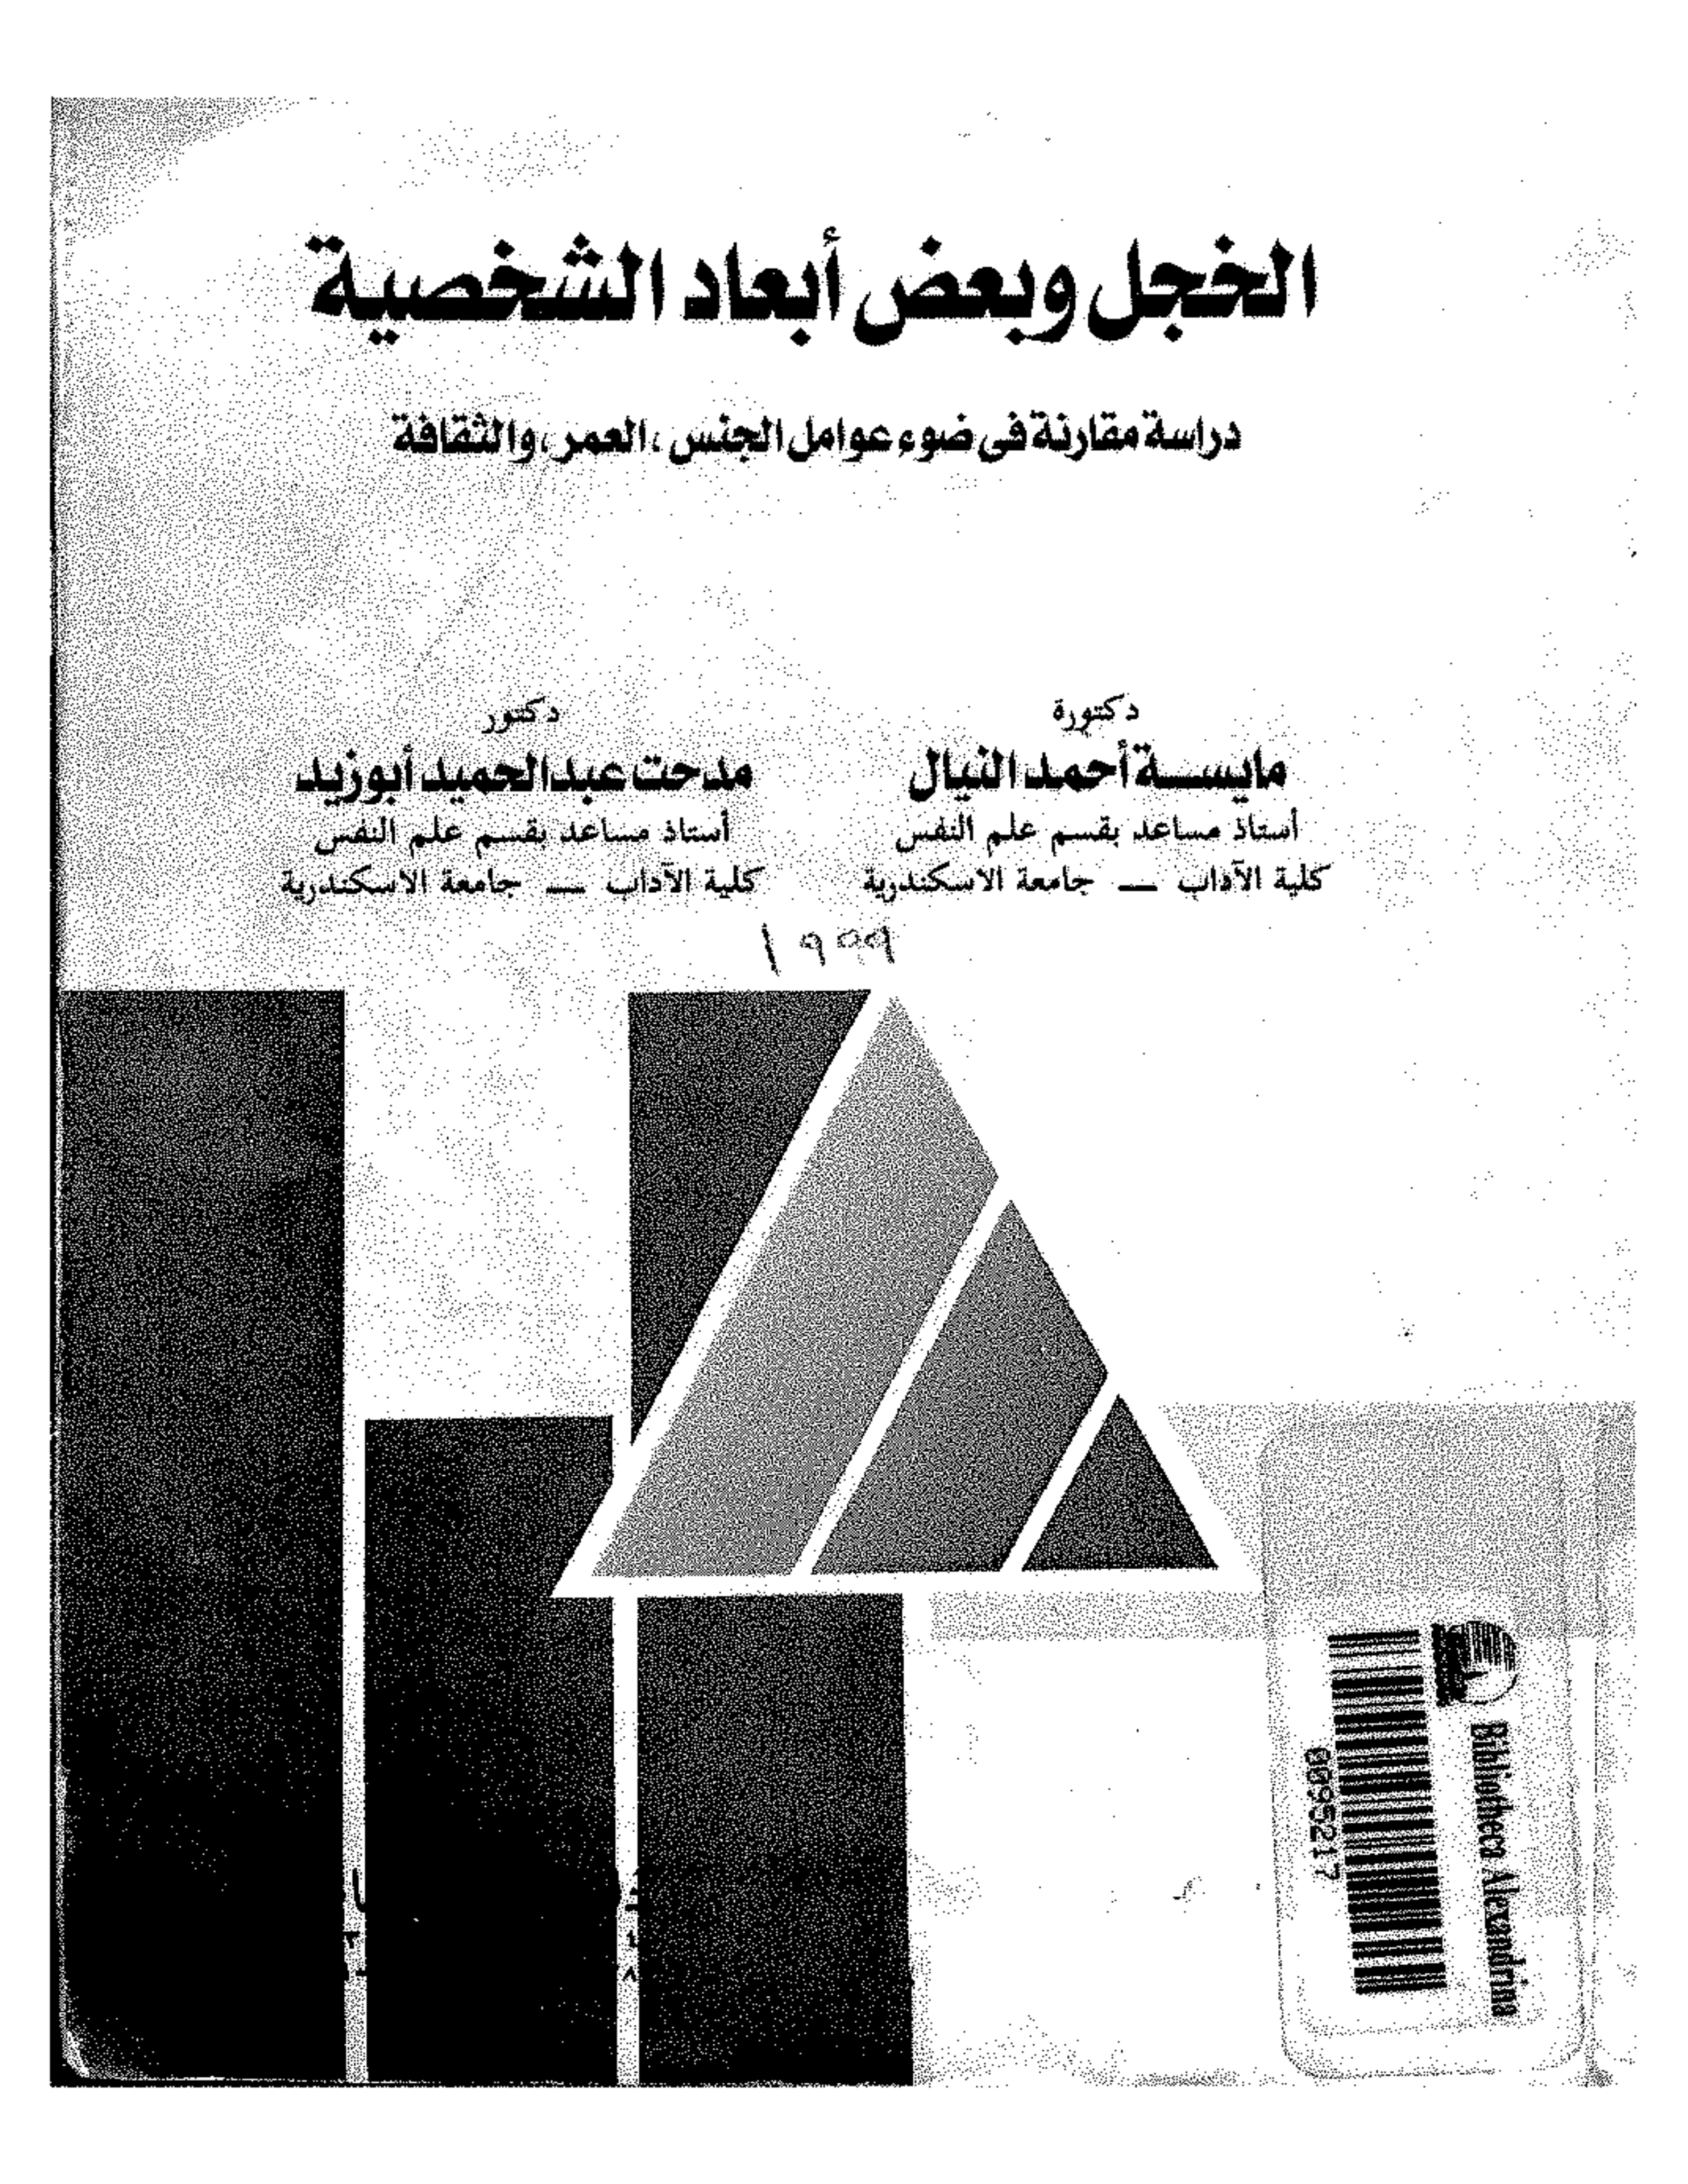 الخجل وبعض أبعاد الشخصية
دراسة مقارنة فى ضوء عوامل الجنس ، العمر ، والثقافة
دكتورة
مايسة أحمد النيال
أستاذ مساعد بقسم علم النفس
كلية الآداب — جامعة الاسكندرية
دكتور
مدحت عبد الحميد أبوزيد
أستاذ مساعد بقسم علم النفس
كلية الآداب — جامعة الاسكندرية
١٩٩٩
Bibliotheca Alexandrina
0395217